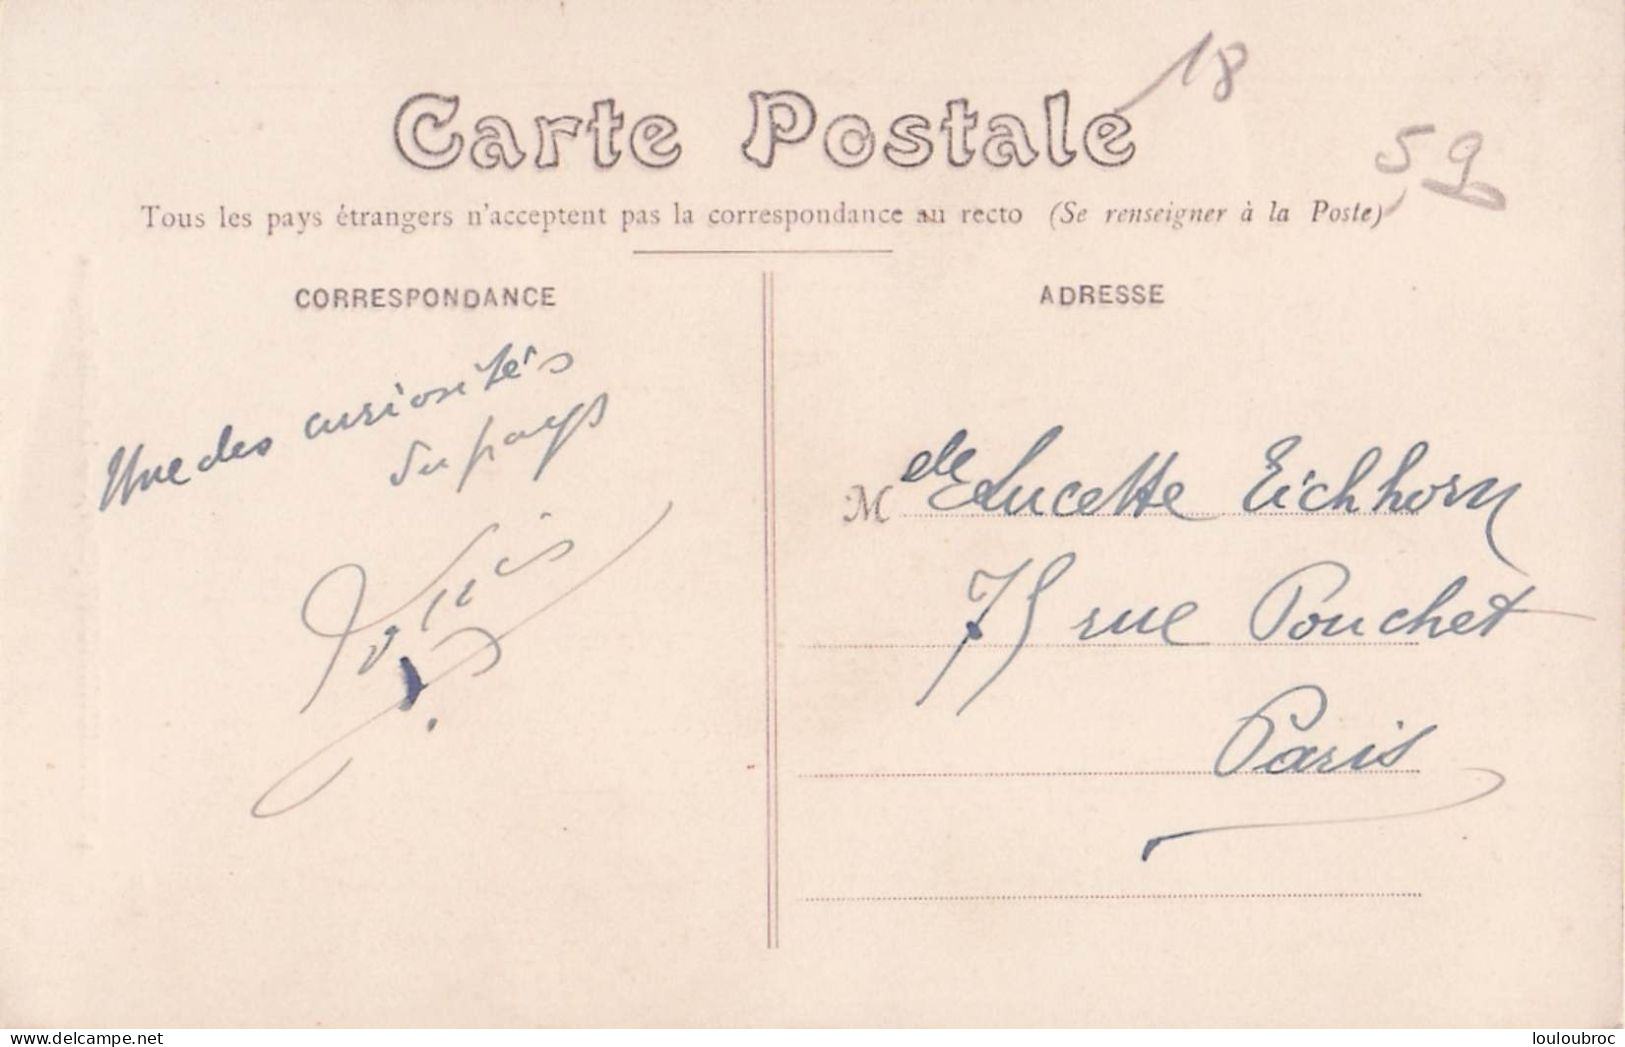 18
Carte Postale
59
Tous les pays étrangers n'acceptent pas la correspondance au recto (Se renseigner à la Poste)
CORRESPONDANCE
Une des curiosités
du pays
ADRESSE
Mdelle Lucette Eichhorn
75 rue Pouchet
Paris
delcampe.net
louloubroc